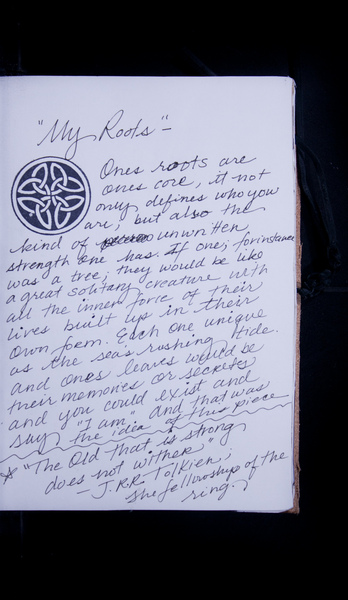 "My Roots"-
Ones roots are
ones core, it not
only defines who you
are, but also the
kind of unwritten
strength one has. If one, for instance
was a tree; they would be like
a great solitary creature with
all the inner force of their
lives built up in their
own form. Each one unique
as the seas rushing tide.
and ones leaves would be
their memories or secrets
and you could exist and
say "I am." and that was
the idea of this piece
* "The Old that is strong
does not wither,"
- J.R.R. Tolkien;
the fellowship of the
ring.